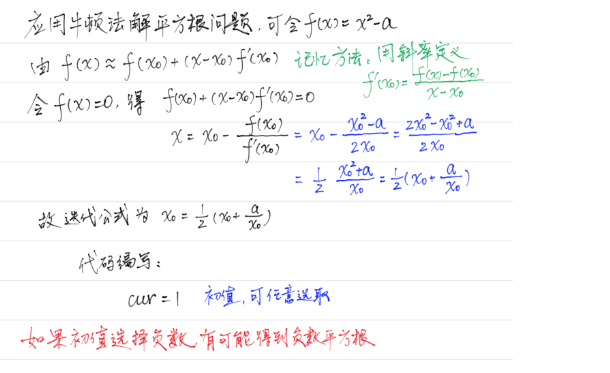 应用牛顿法解平方根问题,可令f(x)=x²-a
由 f(x)≈f(x₀)+(x-x₀)f'(x₀) 记忆方法:用斜率定义
f'(x₀)=(f(x)-f(x₀))/(x-x₀)
令f(x)=0,得 f(x₀)+(x-x₀)f'(x₀)=0
x=x₀-f(x₀)/f'(x₀)=x₀-(x₀²-a)/(2x₀)=(2x₀²-x₀²+a)/(2x₀)
=1/2 (x₀²+a)/x₀=1/2(x₀+a/x₀)
故迭代公式为 x₀=1/2(x₀+a/x₀)
代码编写:
cur=1 初值,可任意选取
如果初值选择负数,有可能得到负数平方根